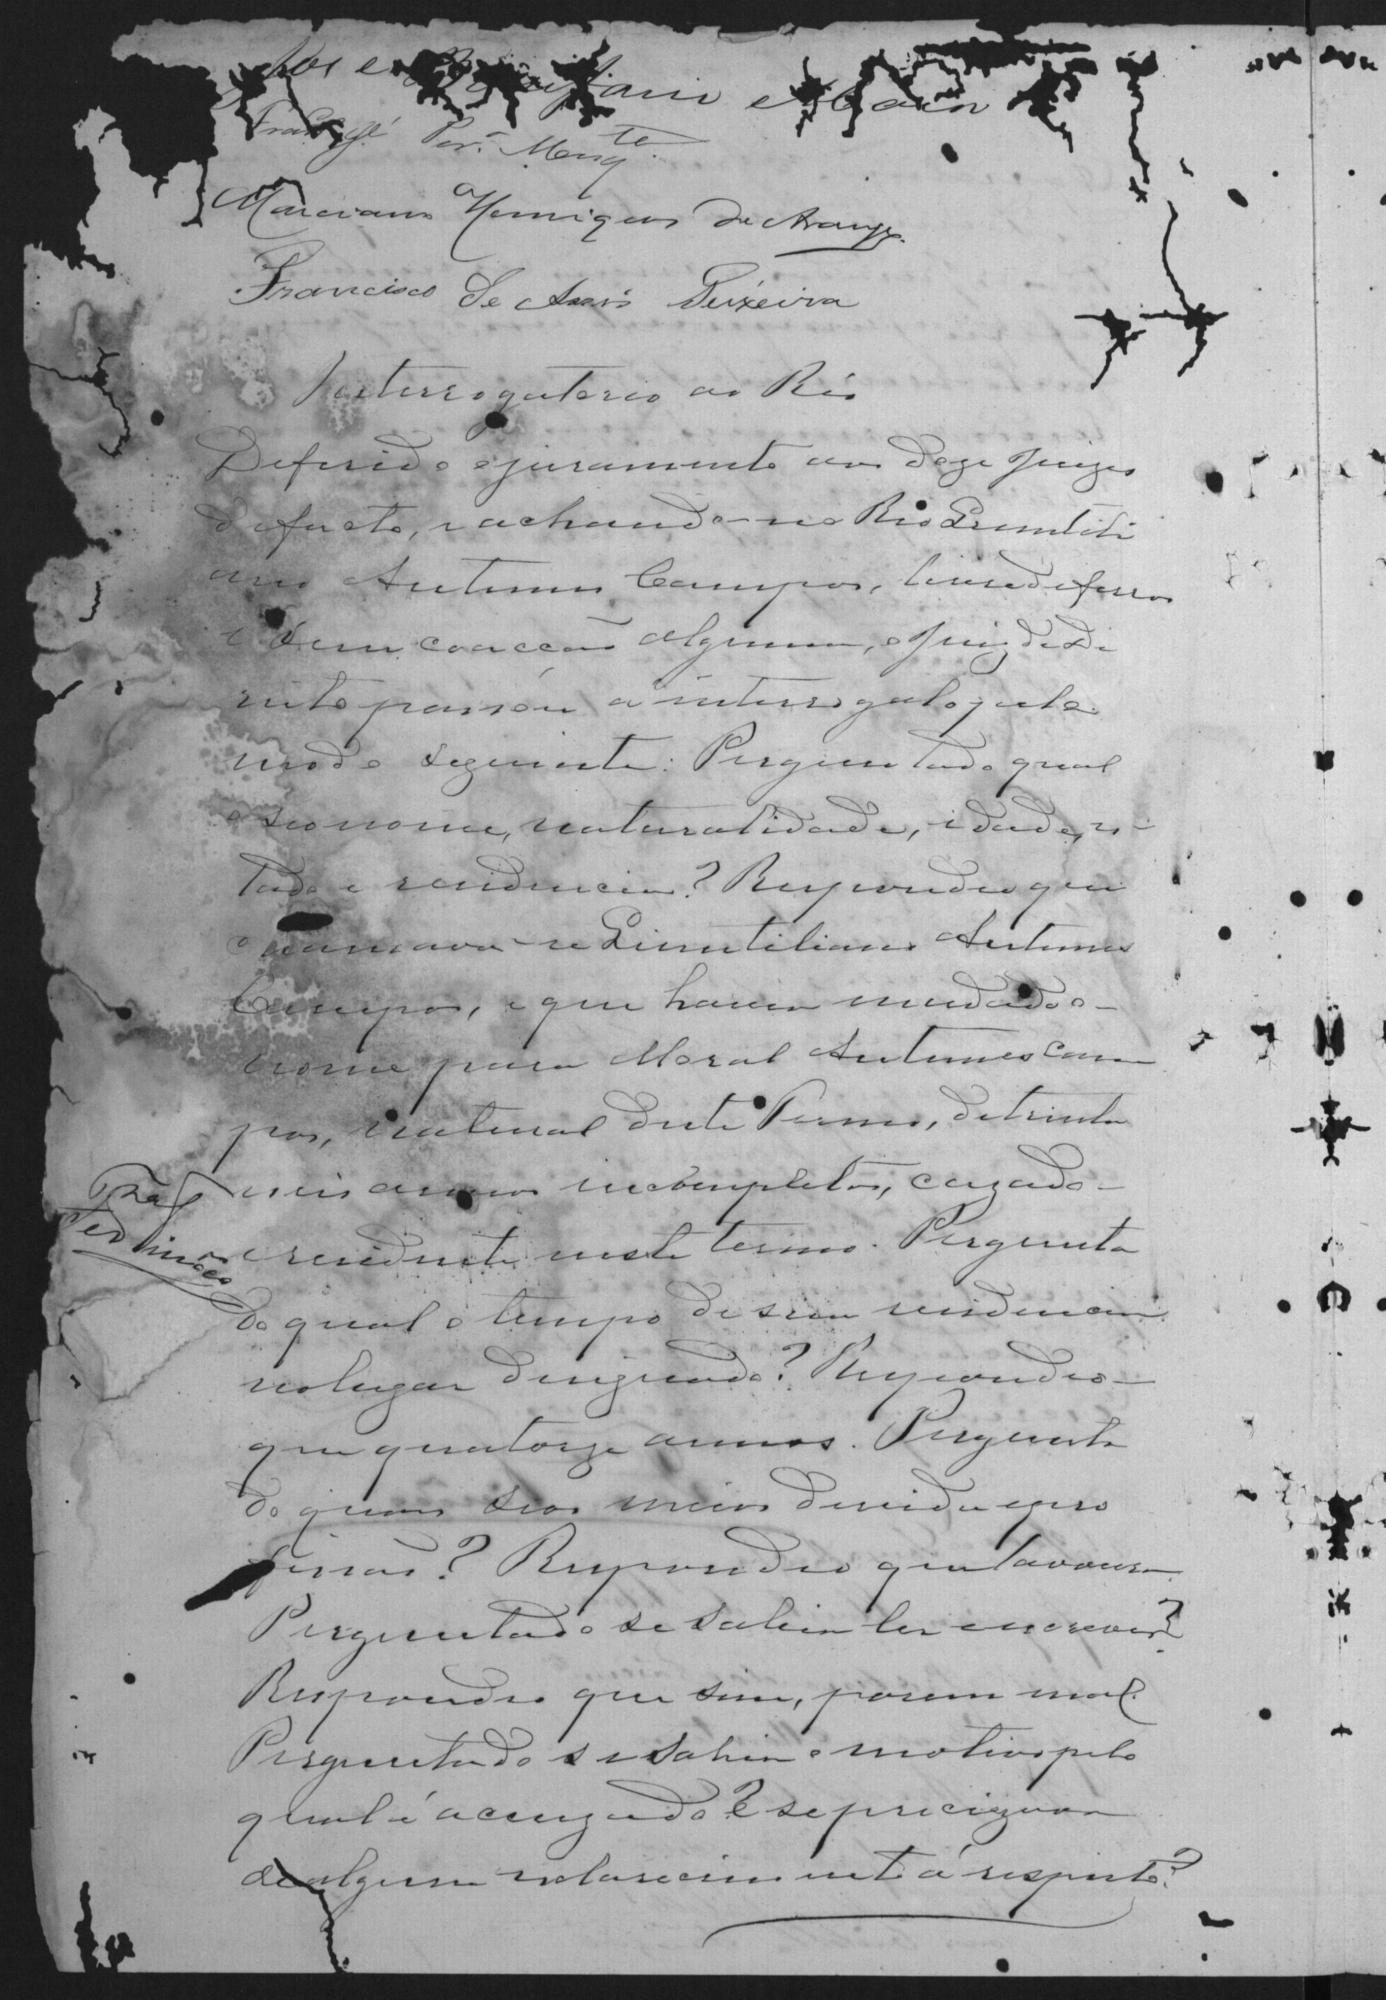 Franc.º Per.ª Mesq.te
Marciano Henriques de Araujo.
Francisco de Assis Teixeira
Interrogatorio ao Réo
Deferido o juramento aos doze Juizes
de facto, e achando-se o Reo Quintili
ano Antunes Campos, livre de ferros
e sem coacção alguma, o Juiz de Di
reito passou a interrogal-o pela
modo seguinte: Perguntado qual
o seo nome, naturalidade, idade, es-
tado e residencia? Respondeo que
chamava-se Quintiliano Antunes
Campos, e que havia mudado o
nome para Moral Antunes Cam
pos, natural deste Termo, de trinta
e seis annos incompletos, cazado
e residente neste termo. Pergunta
do qual o tempo de sua residencia
no lugar designado? Respondeo
que quatorze annos. Pergunta
do quaes seos meios de vida e pro
fissão? Respondeo que lavoura.
Perguntado se sabia ler e escrever?
Respondeo que sim, porem mal.
Perguntado se sabia o motivo pelo
qual é acuzado? E se precizava
de algum esclarecimento á respeito?